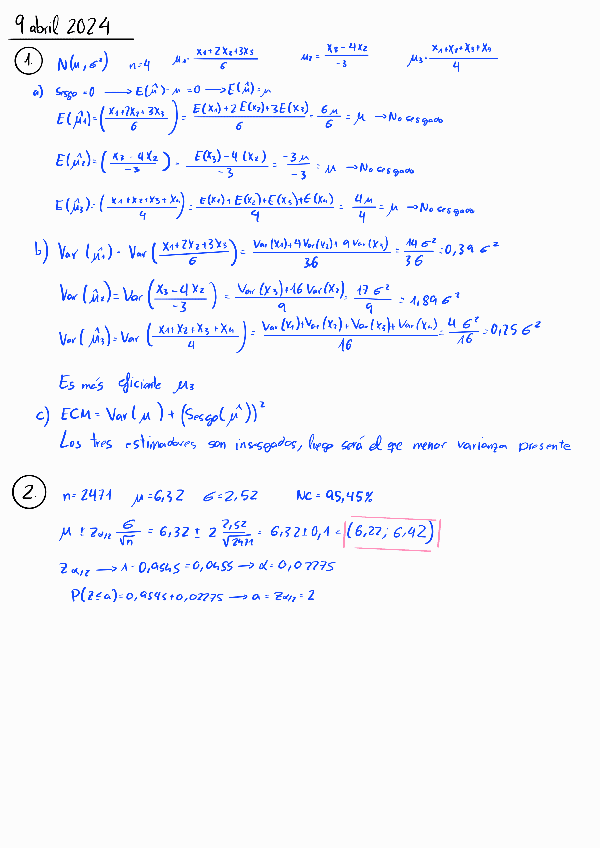 9 abril 2024
1. N(μ, σ²) n=4 μ₁ = (x₁+2x₂+3x₃)/6 μ₂ = (x₃-4x₂)/-3 μ₃ = (x₁+x₂+x₃+x₄)/4
a) Sesgo = 0 → E(μ̂)-μ = 0 → E(μ̂) = μ
E(μ̂₁) = ((x₁+2x₂+3x₃)/6) = (E(x₁)+2E(x₂)+3E(x₃))/6 = 6μ/6 = μ → No sesgado
E(μ̂₂) = ((x₃-4x₂)/-3) = (E(x₃)-4(x₂))/-3 = -3μ/-3 = μ → No sesgado
E(μ̂₃) = ((x₁+x₂+x₃+x₄)/4) = (E(x₁)+E(x₂)+E(x₃)+E(x₄))/4 = 4μ/4 = μ → No sesgado
b) Var(μ̂₁) = Var((x₁+2x₂+3x₃)/6) = (Var(x₁)+4Var(x₂)+9Var(x₃))/36 = 14σ²/36 = 0,39σ²
Var(μ̂₂) = Var((x₃-4x₂)/-3) = (Var(x₃)+16Var(x₂))/9 = 17σ²/9 = 1,89σ²
Var(μ̂₃) = Var((x₁+x₂+x₃+x₄)/4) = (Var(x₁)+Var(x₂)+Var(x₃)+Var(x₄))/16 = 4σ²/16 = 0,25σ²
Es más eficiente μ₃
c) ECM = Var(μ) + (Sesgo(μ̂))²
Los tres estimadores son insesgados, luego será el que menor varianza presente
2. n=2471 μ=6,32 σ=2,52 NC=95,45%
μ ± Zα/2 σ/√n = 6,32 ± 2 2,52/√2471 = 6,32±0,1 = (6,22; 6,42)
Zα/2 → 1-0,9545=0,0455 → α=0,02275
P(Z≤a)=0,9545+0,02275 → a=Zα/2=2